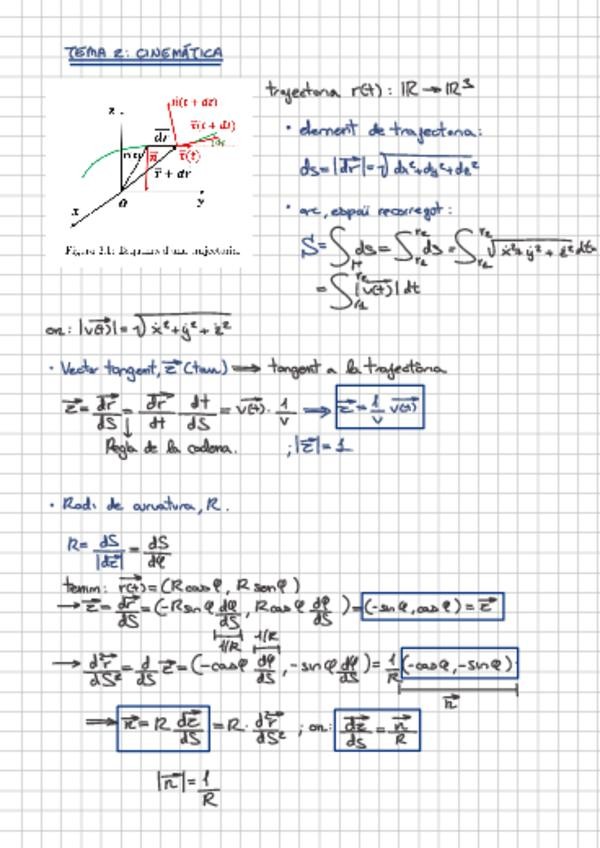 TEMA 2: CINEMÁTICA
trajectoria r(t): ℝ → ℝ³
n(t + dt)
z
τ(t + dt)
dr
r(t)
n
τ(t)
r + dr
O
y
x
Figura 2.1: Esquema d'una trajectoria.
• element de trajectoria:
ds = |dr⃗| = √dx²+dy²+dz²
• arc, espai recorregut:
S = ∫ ds = ∫ ds = ∫ √ẋ²+ẏ²+ż² dt
= ∫ |v(t)| dt
on: |v(t)| = √ẋ²+ẏ²+ż²
• Vector tangent, τ⃗ (tau) ⟹ tangent a la trajectòria
τ⃗ = dr⃗/dS = dr⃗/dt dt/dS = v⃗(t) · 1/v ⟹ τ⃗ = 1/v v⃗(t)
Regla de la cadena. ; |τ⃗| = 1
• Radi de curvatura, R.
R = dS/|dτ⃗| = dS/dφ
tenim: r⃗(t) = (R cosφ, R senφ)
→ τ⃗ = dr⃗/dS = (-R sinφ dφ/dS, R cosφ dφ/dS) = (-sinφ, cosφ) = τ⃗
1/R 1/R
→ d²r⃗/dS² = d/dS τ⃗ = (-cosφ dφ/dS, -sinφ dφ/dS) = 1/R (-cosφ, -sinφ)
n⃗
⟹ n⃗ = R dτ⃗/dS = R · d²r⃗/dS² ; on: dτ⃗/ds = n⃗/R
|n⃗| = 1/R